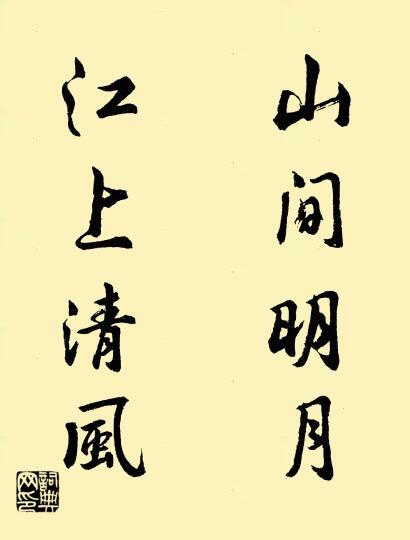 山间明月
江上清風
詞典網印